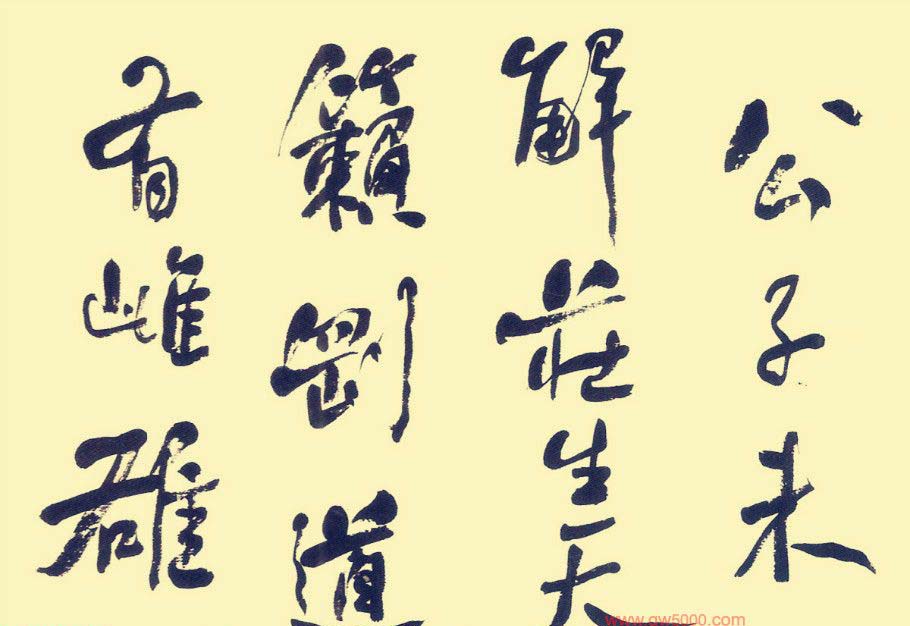 公子未
解莊生天
籟剛道
有雌雄
www.gw5000.com